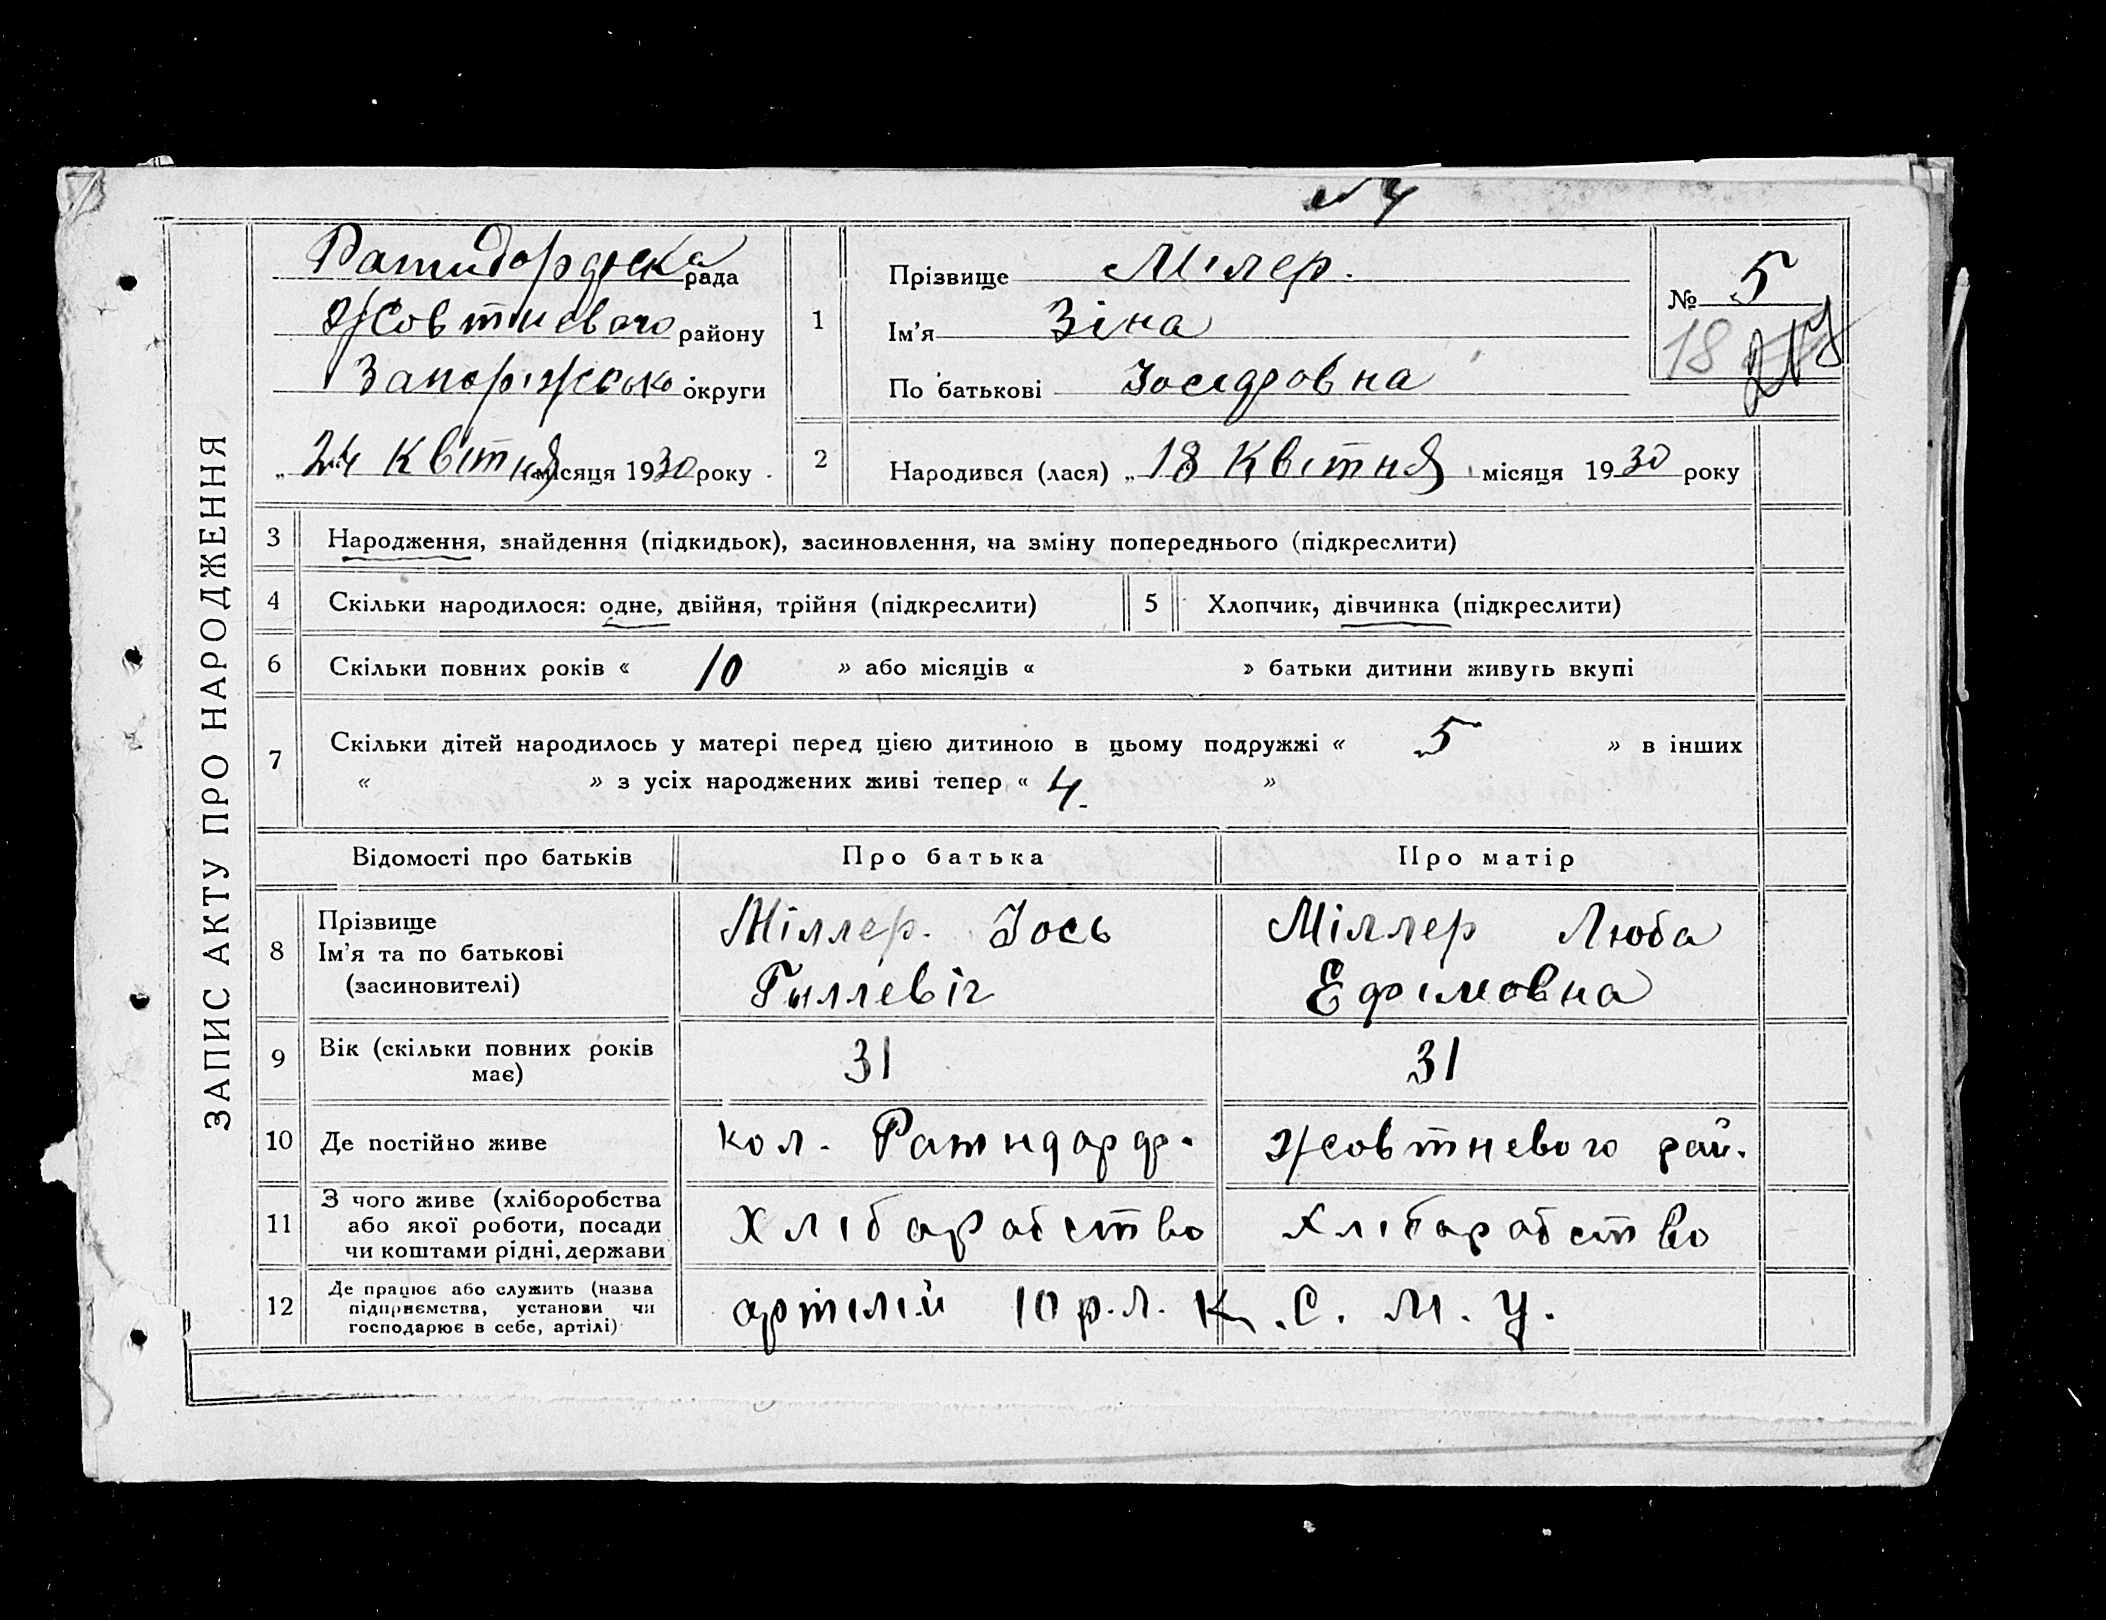 ЗАПИС АКТУ ПРО НАРОДЖЕННЯ
Ратидорфска рада
Жовтневого району
Запоріжсько округи
„ 24 Квітня місяця 1930 року
№ 5
18
1 Прізвище Мілер.
Ім'я Зіна
По батькові Іосіфовна
2 Народився (лася) „ 18 Квітня місяця 1930 року
3 Народження, знайдення (підкидьок), засиновлення, на зміну попереднього (підкреслити)
4 Скільки народилося: одне, двійня, трійня (підкреслити) 5 Хлопчик, дівчинка (підкреслити)
6 Скільки повних років « 10 » або місяців « » батьки дитини живуть вкупі
7 Скільки дітей народилось у матері перед цією дитиною в цьому подружжі « 5 » в інших
« » з усіх народжених живі тепер « 4 »
Відомості про батьків Про батька Про матір
8 Прізвище
Ім'я та по батькові
(засиновителі)
Міллер. Іось
Гыллевіч
Міллер Люба
Ефімовна
9 Вік (скільки повних років
має)
31 31
10 Де постійно живе кол. Ратндорф. Жовтневого рай.
11 З чого живе (хліборобства
або якої роботи, посади
чи коштами рідні, держави
Хлібаработво Хлібаработво
12 Де працює або служить (назва
підприємства, установи чи
господарює в себе, артілі)
артілій 10 р.л. К.С.М.У.